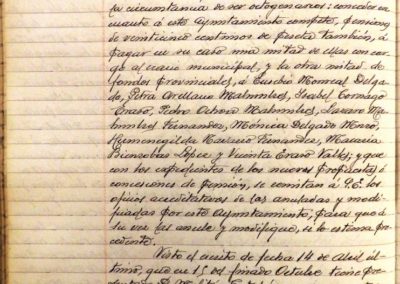 su circunstancia de ser octogenarios: conceder en
cuanto á este Ayuntamiento compete, pensiones
de veinticinco centimos de peseta también, á
pagar en su caso una mitad de ellas con car-
go al erario municipal, y la otra mitad de
fondos provinciales, á Eusebio Monreal Delga-
do, Petra Arellano Malumbres, Isabel Cornago
Eraso, Pedro Ochoa Malumbres, Lazaro Ma-
lumbres Fernandez, Mónica Delgado
Hermenegilda Navarro Fernandez, Macaria
Lopez y Vicenta Eraso Valdes; y que
con los expedientes de las nuevas propuestas ó
concesiones de pensión, se remitan á S. E. los
oficios acreditativos de las anuladas y modi-
ficadas por este Ayuntamiento, para que á
su vez las anule y modifique, si lo estima pro-
cedente.
Visto el escrito de fecha 14 de Abril úl-
timo, que en 15 del finado Octubre tiene pre-